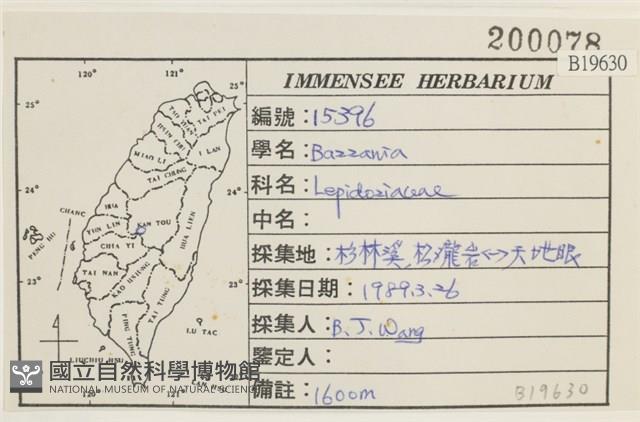 200078
B19630
IMMENSEE HERBARIUM
編號：15396
學名：Bazzania
科名：Lepidoziaceae
中名：
採集地：杉林溪,松瀧岩<->天地眼
採集日期：1989.3.26
採集人：B.J.Wang
鑒定人：
備註：1600m
B19630
120°
121°
25°
25°
TAI PEI
I LAN
MIAO LI
TAI CHUNG
24°
24°
CHANG
HUA
NAN TOU
YUN LIN
HUA LIEN
PENG HU
CHIA YI
TAI NAN
KAO HSIUNG
23°
23°
TAI TUNG
PING TUNG
LU TAO
LIUCHIU HSU
120°
121°
國立自然科學博物館
NATIONAL MUSEUM OF NATURAL SCIENCE